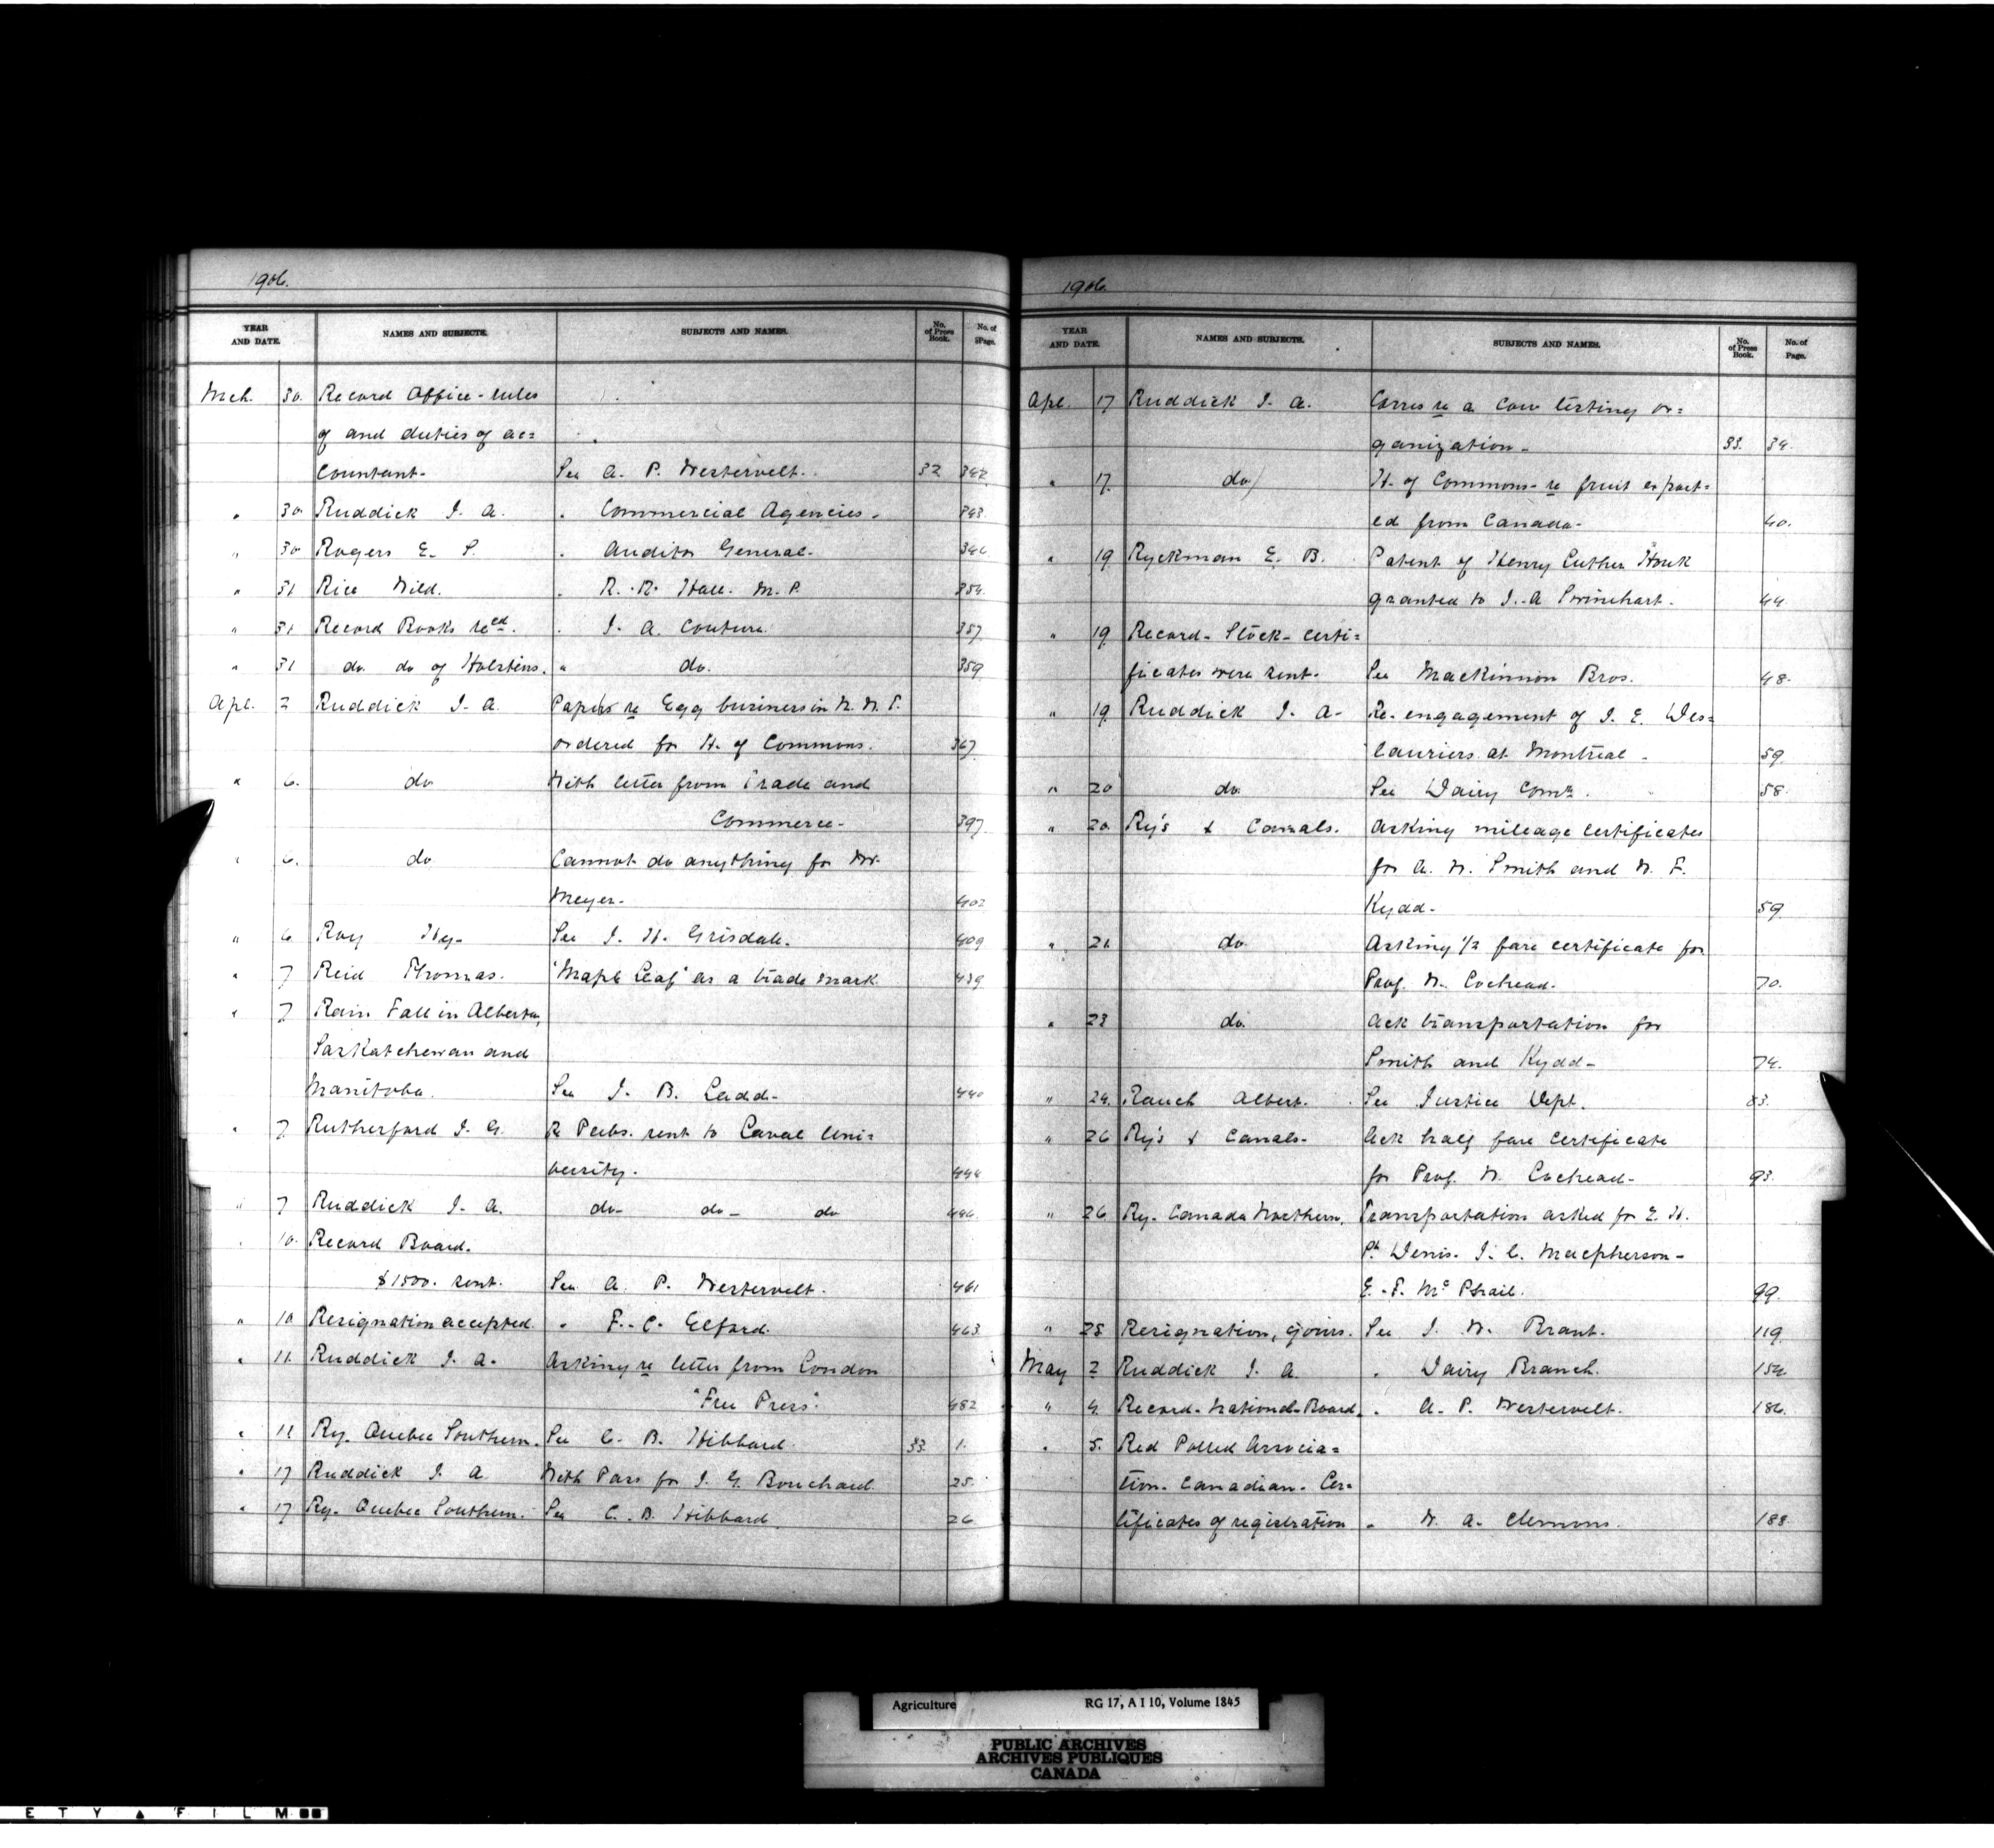 1906.
YEAR AND DATE. NAMES AND SUBJECTS. SUBJECTS AND NAMES. No. of Press Book. No. of Page.
Mch. 30. Record Office - rules
of and duties of ac=
countant. See A. P. Westervelt. 32 342
" 30 Ruddick J. A. " Commercial Agencies. 343
" 30 Rogers E. S. " Auditor General. 346
" 31 Rice Wild. " R. R. Hall. M. P. 354
" 31 Record Books recd. " J. A. Couture. 357
" 31 do do of Holsteins. " do. 359
Apl. 2 Ruddick J. A. Papers re Egg business in N. W. T.
ordered for H. of Commons. 367
" 6. do With letter from Trade and
Commerce - 397
" 6. do Cannot do anything for Mr.
Meyer - 402
" 6 Roy Hy - See J. H. Grisdale. 409
" 7 Reid Thomas. "Maple Leaf" as a trade mark 439
" 7 Rain Fall in Alberta,
Saskatchewan and
Manitoba. See J. B. Ladd - 440
" 7 Rutherford J. G. R Pubs. sent to Laval Uni=
versity. 446
" 7 Ruddick J. A. do - do - do 446
" 10. Record Board.
$1500. sent. See A. P. Westervelt. 461
" 10 Resignation accepted. " F. C. Elford. 463
" 11. Ruddick J. A. Asking re letter from London
"Free Press". 482
" 11 Ry. Quebec Southern. See C. B. Hibbard. 33. 1.
" 17 Ruddick J. A. With Pass for J. G. Bouchard. 25.
" 17 Ry. Quebec Southern. See C. B. Hibbard. 26
1906.
YEAR AND DATE. NAMES AND SUBJECTS. SUBJECTS AND NAMES. No. of Press Book. No. of Page.
Apl. 17 Ruddick J. A. Corres re a Cow testing or=
ganization - 33. 34.
" 17. do H. of Commons - re fruit export=
ed from Canada - 40.
" 19 Ryckman E. B. Patent of Henry Luther Houk
granted to J. A Swinehart. 44
" 19 Record - Stock - certi=
ficates were sent - See Mackinnon Bros. 48.
" 19 Ruddick J. A - Re-engagement of J. E. Des=
lauriers at Montreal - 59
" 20 do. See Dairy Comr. 58.
" 20. Ry's & Canals. Asking mileage certificates
for A. W. Smith and W. F.
Kydd - 59
" 21. do. Asking 1/2 fare certificate for
Prof. W. Lochead. 70.
" 23 do. Ack transportation for
Smith and Kydd - 74.
" 24. Rauch Albert. See Justice Dept. 83.
" 26 Ry's & Canals - Ack half fare certificate
for Prof. W. Lochead - 93.
" 26 Ry. Canada Northern. Transportation asked for E. H.
St. Denis. J. C. Macpherson -
E. S. McPhail. 99.
" 28 Resignation, yours. See J. W. Brant. 119
May 2 Ruddick J. A. " Dairy Branch. 154
" 4. Record - National - Board. " A. P. Westervelt. 186.
" 5. Red Polled Associa=
tion - Canadian - Cer=
tificates of registration " W. A. Clemons. 188
Agriculture RG 17, A I 10, Volume 1845
PUBLIC ARCHIVES
ARCHIVES PUBLIQUES
CANADA
E T Y ▲ F I L M